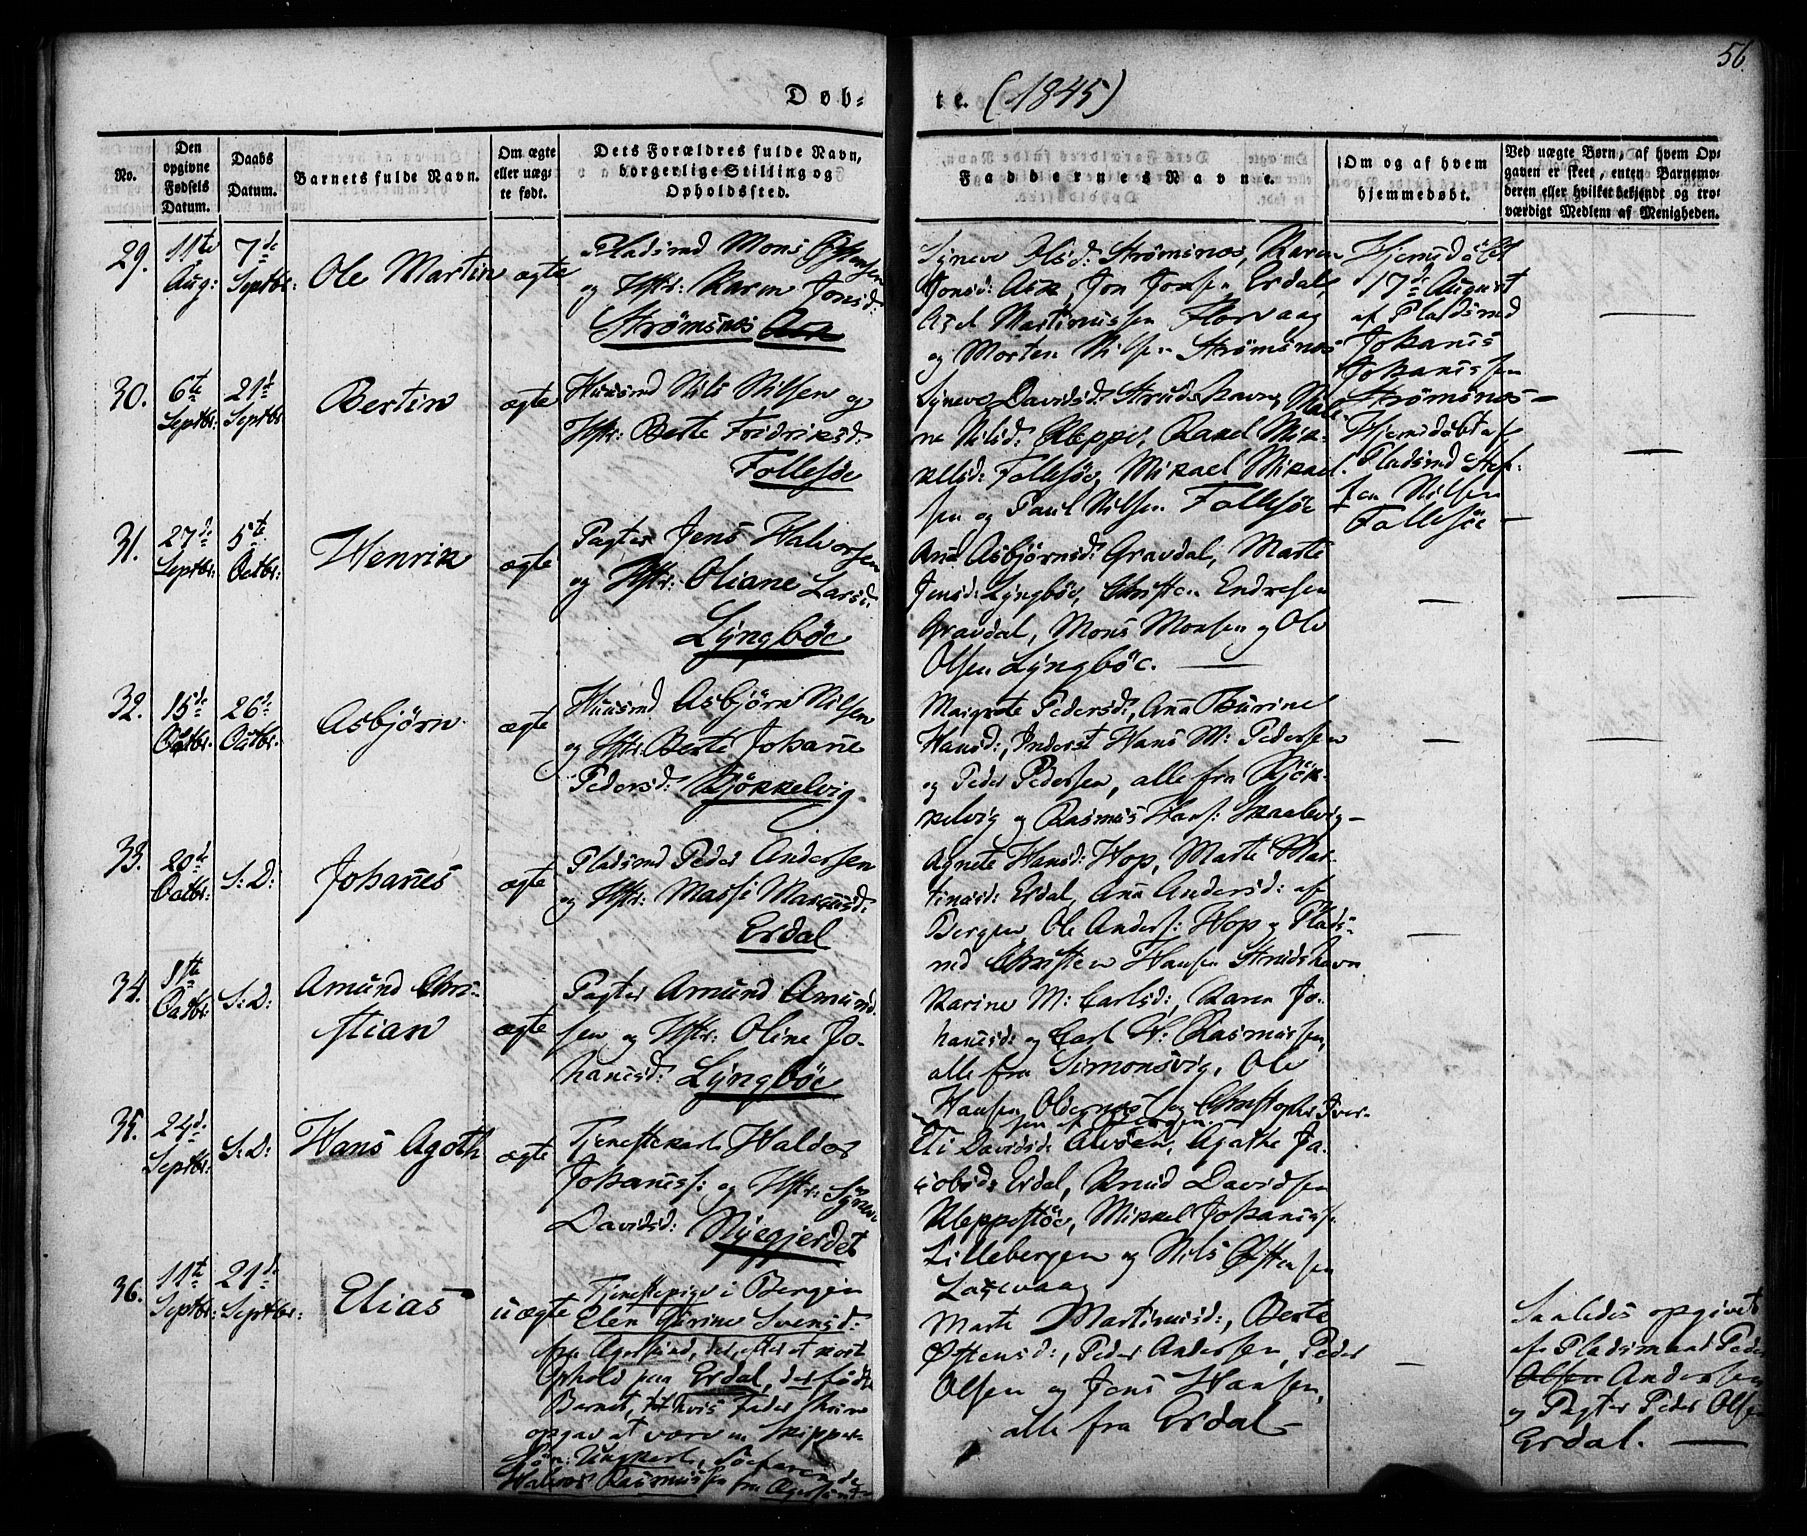 56.
Døb-
te. (1845)
No.
Den opgivne Fødsels Datum.
Daabs Datum.
Barnets fulde Navn.
Om ægte eller uægte født.
Dets Forældres fulde Navn, borgerlige Stilling og Opholdssted.
Faddernes Navne.
Om og af hvem hjemmedøbt.
Ved uægte Børn, af hvem Opgaven er skeet, enten Barnemoderen eller hvilket bekjendt og troværdigt Medlem af Menigheden.
29.
11te Aug:
7de Septbr:
Ole Martin
ægte
Pladsmd Mons Østensen
og Hstr: Karen Jonsd:
Strømsnæs Ask
Syneve Olsd: Strømsnæs, Karen
Jonsd: Ask, Jon Jonsen Erdal,
Axel Martinussen Florvaag
og Morten Nilsen Strømsnæs
Hjemedøbt
17de August
af Pladsmd
Johanes
Johanessen
Strømsnæs —
30.
6te Septbr:
21de Septbr:
Bertin
ægte
Huusmd Nils Nilsen og
Hstr: Berte Fridriksd:
Follesøe
Syneve Davidsd: Strudshavn, Male
ne Nilsd: Kleppe, Rakel Mik-
kelsd: Follesøe, Mikael Mikael
sen og Paul Nilsen Follesøe
Hjemedøbt af
Pladsmd Stef-
fen Nilsen
Follesøe —
31.
27de Septbr:
5te Octbr:
Henrik
ægte
Pagter Jens Halvorsen
og Hstr: Oliane Larsd:
Lyngbøe
Ana Asbjørnsd: Gravdal, Marte
Jensd: Lyngbøe, Christen Endresen
Gravdal, Mons Monsen og Ole
Olsen Lyngbøe. —
32.
15de Octbr:
26de Octbr:
Asbjørn
ægte
Huusmd Asbjørn Nilsen
og Hstr: Berte Johane
Pedersd: Kjøkkelvig
Margrete Pedersd:, Ana Thurine
Hansd:, Inderst Hans M: Pedersen
og Peder Pedersen, alle fra Kjøk-
kelvig og Rasmus Hans: Skaalevig —
33.
20de Octbr:
S: D:
Johanes
ægte
Pladsmd Peder Andersen
og Hstr: Massi Marcusd:
Erdal
Agnete Hansd: Hop, Marte Mar-
tinusd: Erdal, Ana Andersd: af
Bergen, Ole Anders: Hop og Plads-
md Christen Hansen Strudshavn
34.
8te Octbr:
S: D:
Amund Chri-
stian
ægte
Pagter Amund Amund
sen og Hstr: Oline Jo-
hanesd: Lyngbøe
Karine M: Carlsd:, Karen Jo-
hanesd: og Carl H: Rasmussen,
alle fra Simonsvig, Ole
Hansen Oldernæs og Christopher Iver-
sen af Bergen
35.
24de Septbr:
S: D:
Hans Agoth
ægte
Tjenestekarl Haldor
Johaness: og Hstr: Syneve
Davidsd: Nyegjerdet
Eli Davidsd: Alvøen, Agathe Ja-
cobsd: Erdal, Knud Davidsen
Kleppestøe, Mikkel Johaness:
Lillebergen og Nils Østensen
Laxevaag
36.
11te Septbr:
21de Septbr:
Elias
uægte
Tjenestepige i Bergen
Elen Serine Svensd:
fra Agersund, der efter et kort
Ophold paa Erdal, der fødte
Barnet, til hvis Fader hun
opgav at være en Skipper-
søn: Ungkarl, Søefarende
Halvor Rasmussen fra Agersund
Marte Martinusd:, Berte
Østensd:, Peder Andersen, Peder
Olsen og Jens Hansen,
alle fra Erdal —
Saaledes opgivet
af Pladsmand Peder
Olsen Andersen
og Pagter Peder Olsen
Erdal. —